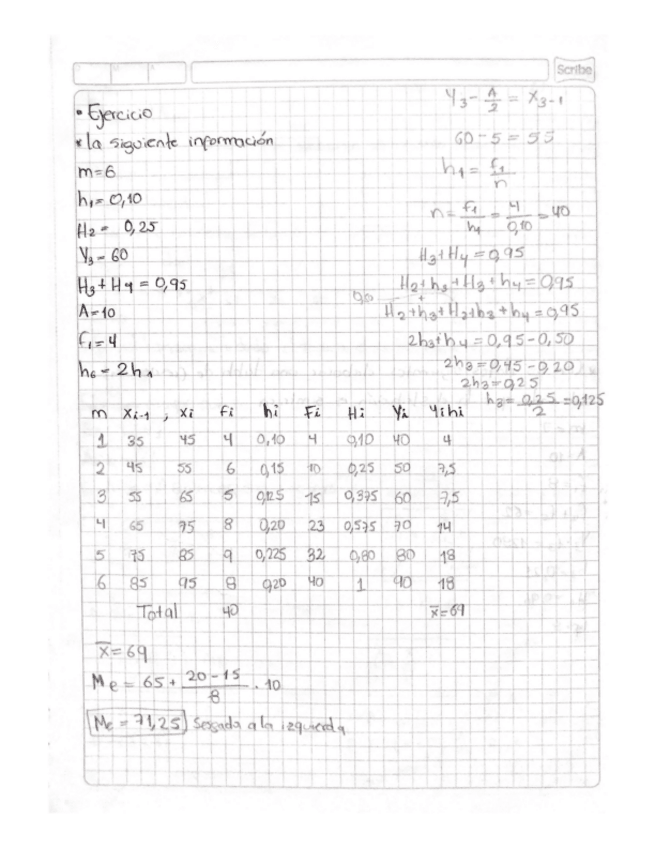 Scribe
• Ejercicio
* la siguiente información
m=6
h₁= 0,10
H₂ = 0,25
Y₃ = 60
H₃ + H₄ = 0,95
A=10
f₁=4
h₆ = 2h₁
Y₃ - A/2 = X₃₋₁
60 - 5 = 55
h₁ = f₁/n
n = f₁/h₁ = 4/0,10 = 40
H₃ + H₄ = 0,95
H₂ + h₃ + H₃ + h₄ = 0,95
H₂ + h₃ + H₂ + h₃ + h₄ = 0,95
2h₃ + h₄ = 0,95 - 0,50
2h₃ = 0,45 - 0,20
2h₃ = 0,25
h₃ = 0,25/2 = 0,125
m Xi-1 , Xi fi hi Fi Hi Yi Yihi
1 35 45 4 0,10 4 0,10 40 4
2 45 55 6 0,15 10 0,25 50 7,5
3 55 65 5 0,125 15 0,375 60 7,5
4 65 75 8 0,20 23 0,575 70 14
5 75 85 9 0,225 32 0,80 80 18
6 85 95 8 0,20 40 1 90 18
Total 40 x̄=69
x̄=69
Me = 65 + 20-15/8 . 10
Me = 71,25 Sesgada a la izquierda